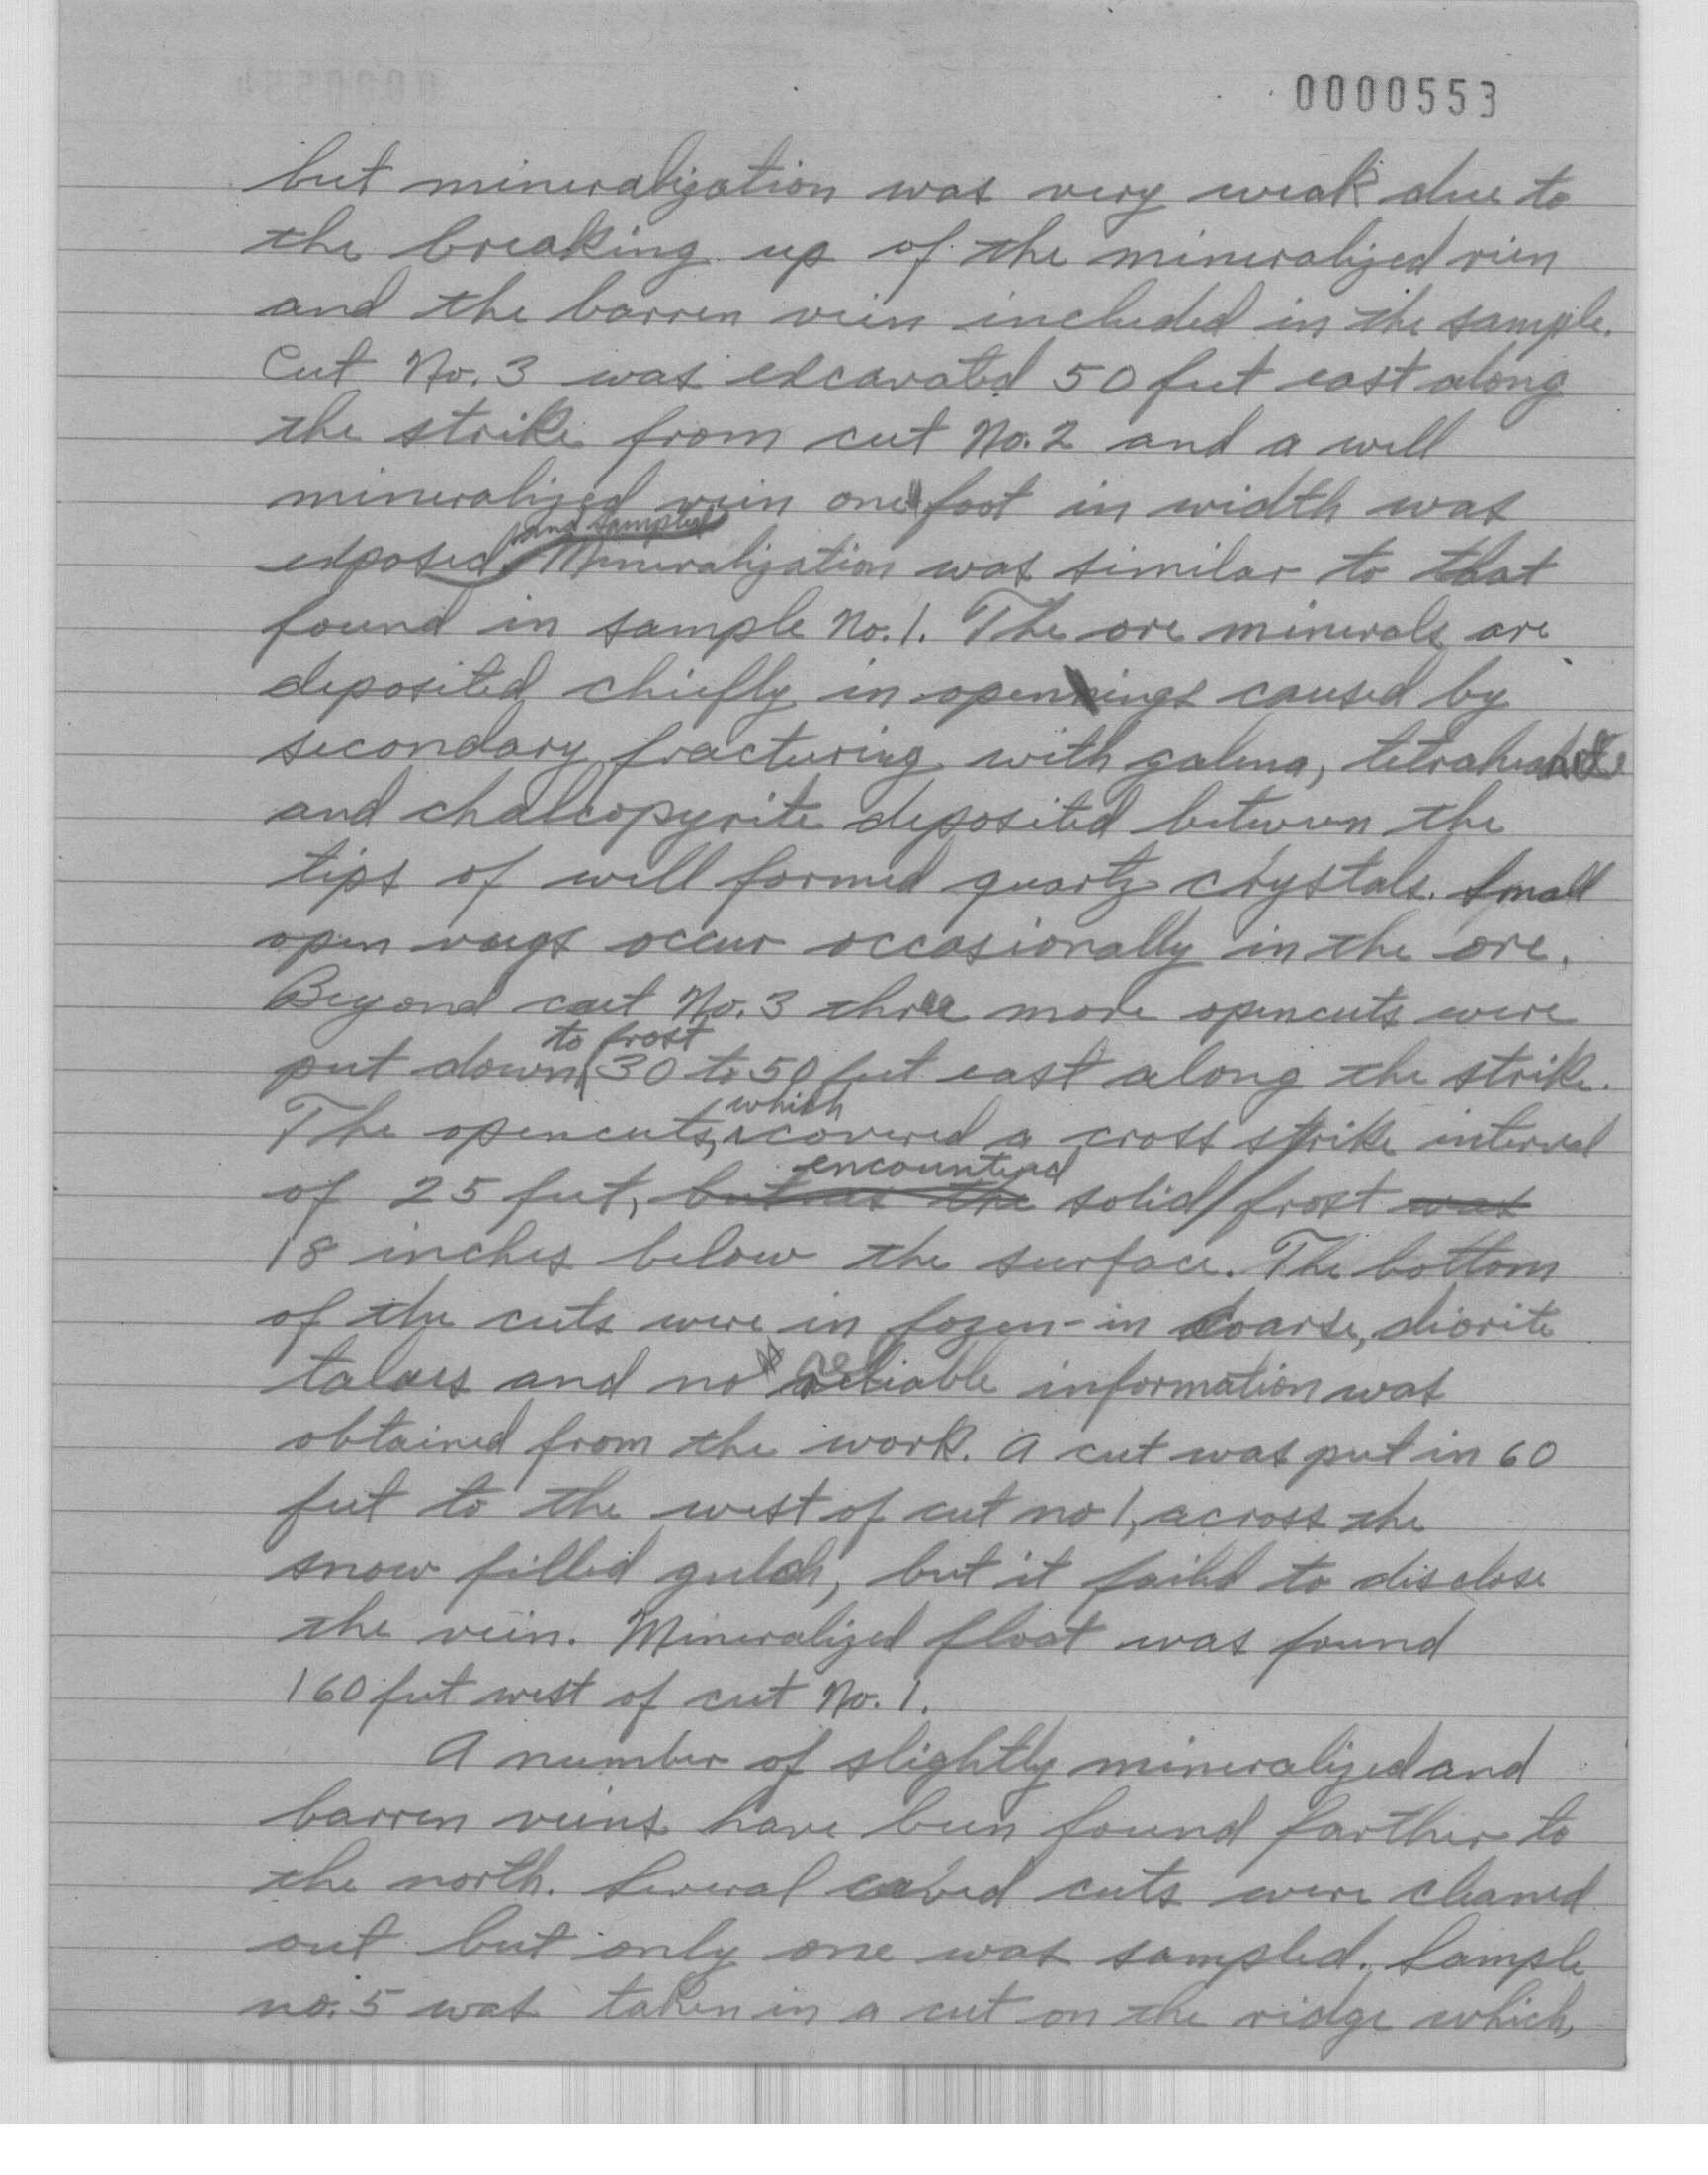 0000553
but mineralization was very weak due to
the breaking up of the mineralized vien
and the barren vein included in the sample.
Cut No. 3 was excavated 50 feet east along
the strike from cut No. 2 and a well
mineralized vein one foot in width was
and sampled
exposed. Mineralization was similar to that
found in sample No. 1. The ore minerals are
deposited chiefly in openings caused by
secondary fracturing with galena, tetrahedrite
and chalcopyrite deposited between the
tips of well formed quartz crystals. Small
open vugs occur occasionally in the ore.
Beyond cut No. 3 three more opencuts were
to frost
put down 30 to 50 feet east along the strike.
which
The opencuts, covered a cross strike interval
encountered
of 25 feet, but as the solid frost was
18 inches below the surface. The bottom
of the cuts were in fozen-in coarse, diorite
talus and no reliable information was
obtained from the work. A cut was put in 60
feet to the west of cut no 1, across the
snow filled gulch, but it failed to disclose
the vein. Mineralized float was found
160 feet west of cut No. 1.
A number of slightly mineralized and
barren veins have been found farther to
the north. Several caved cuts were cleaned
out but only one was sampled. Sample
no. 5 was taken in a cut on the ridge which